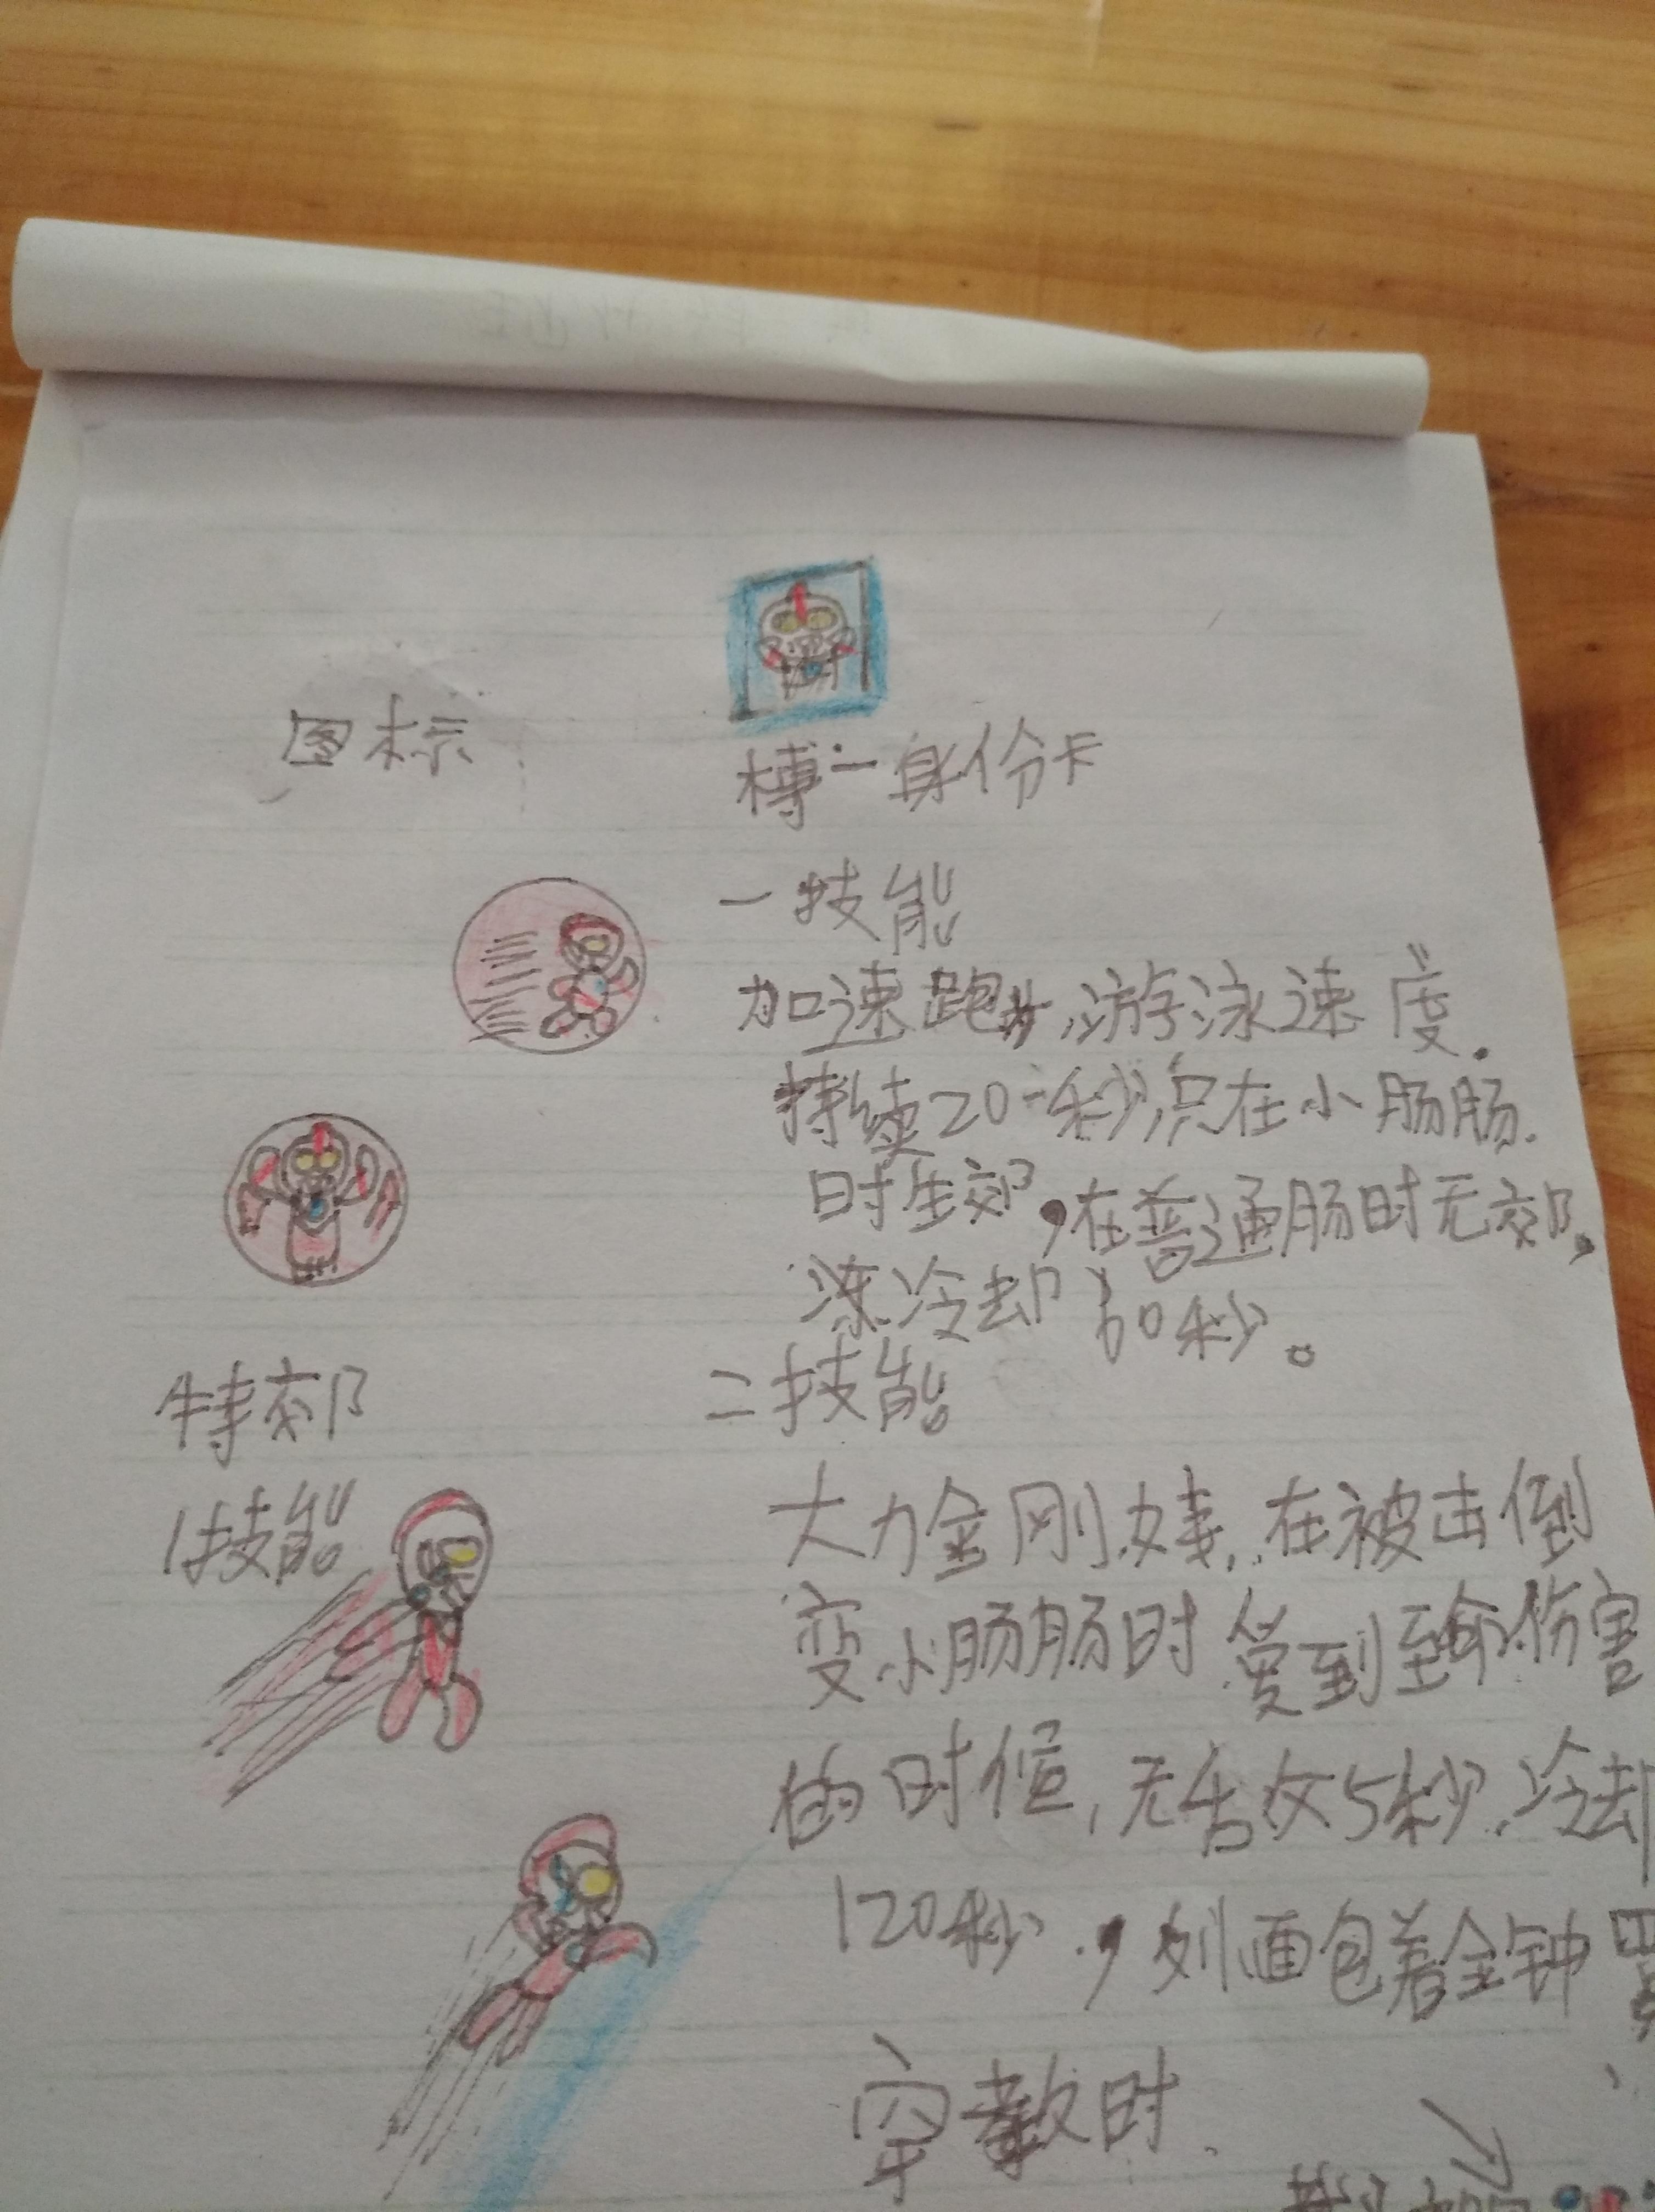 图标
榑一身份卡
一技能
加速跑步,游泳速度.
持续20秒,只在小肠肠.
时生郊,在普通肠时无郊,
冷却60秒。
特郊
1技能
二技能
大力金刚 在被击倒
变小肠肠时 受到至命伤害
的时候,无 5秒,冷却
120秒, 面包着金钟罩
穿 时